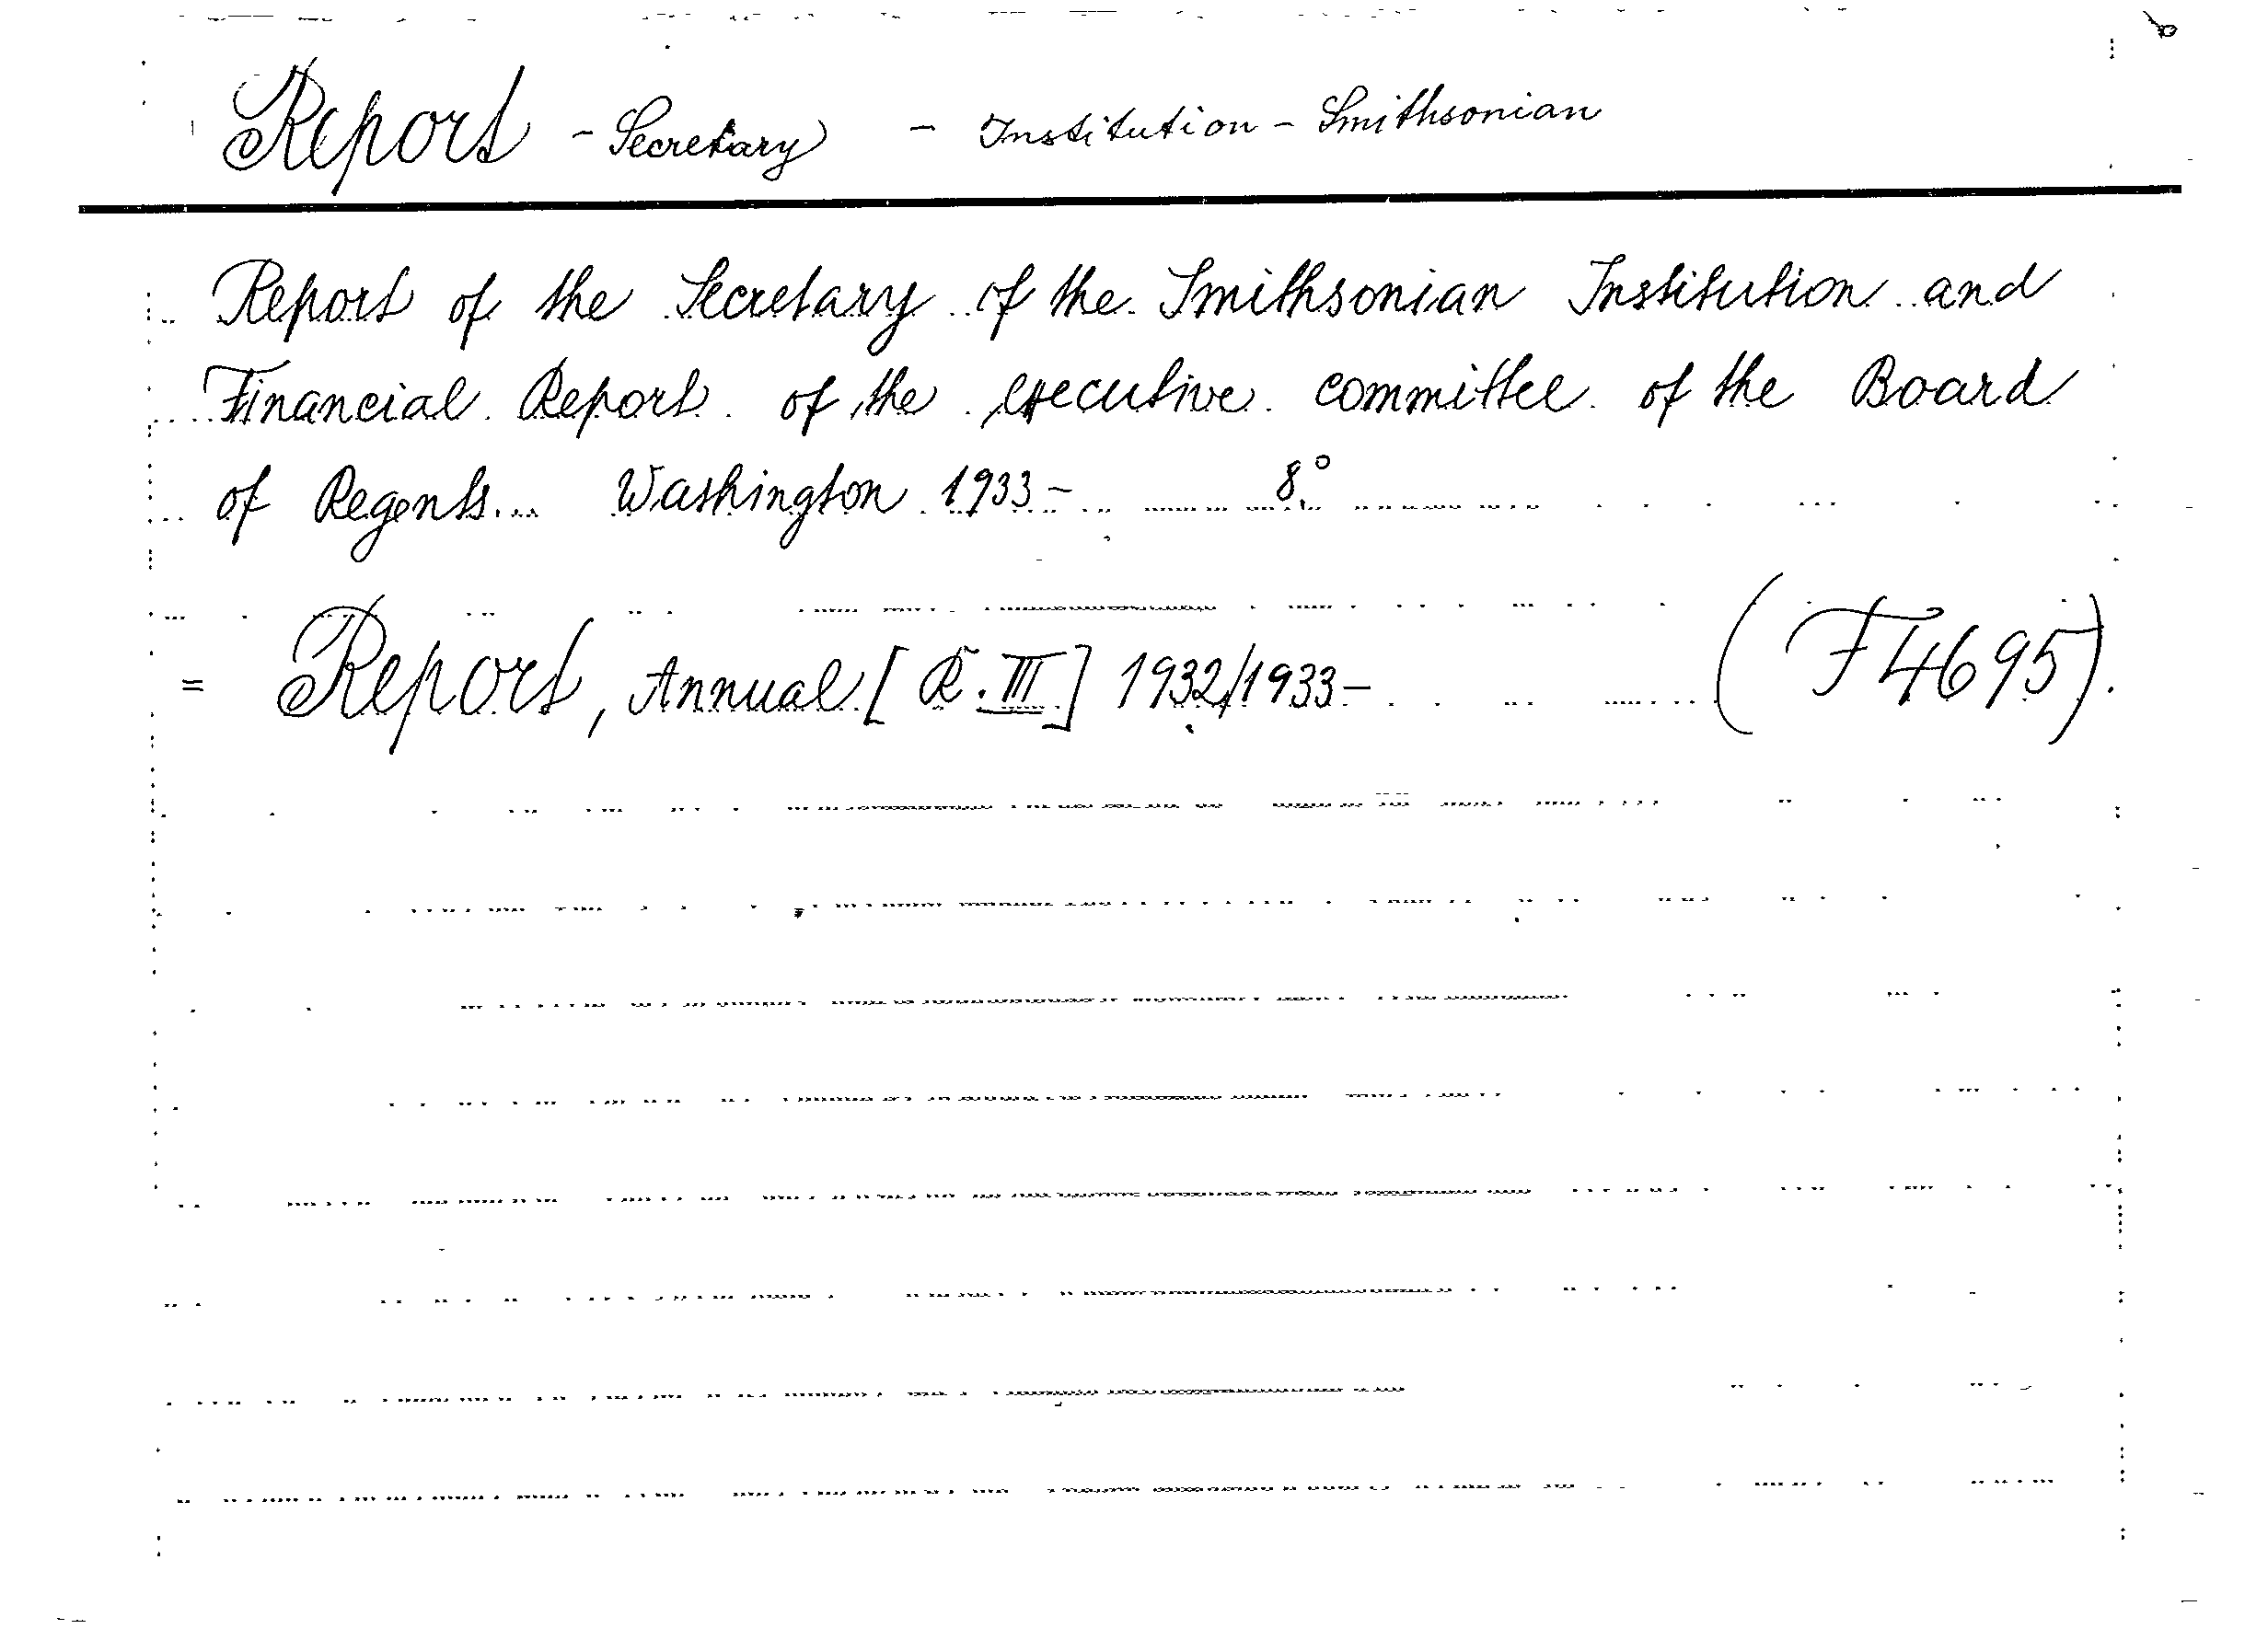 Report - Secretary - Institution - Smithsonian
Report of the Secretary of the Smithsonian Institution and
Financial Report of the executive committee of the Board
of Regents... Washington 1933- 8.°
= Report, Annual [R.III] 1932/1933- (F4695).